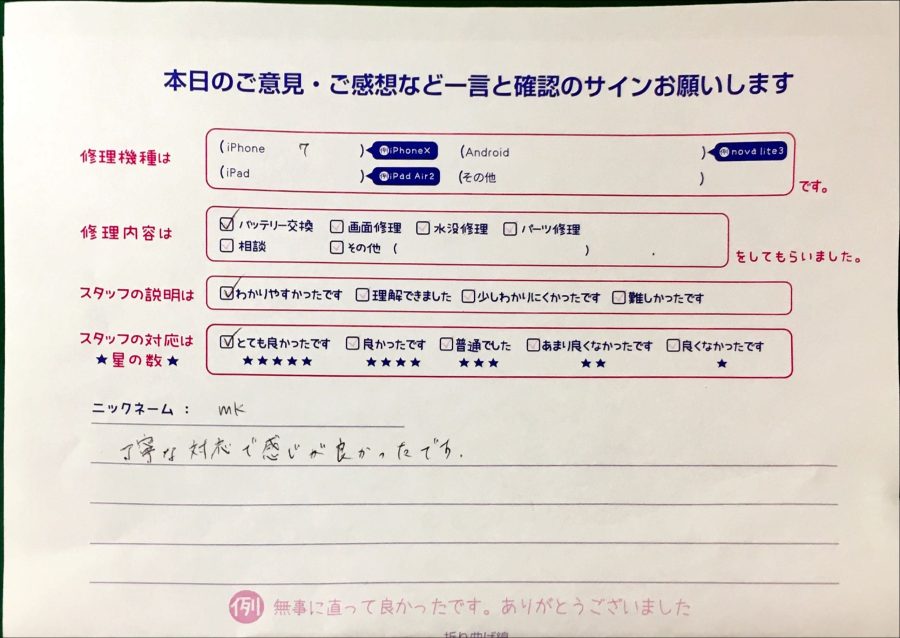 本日のご意見・ご感想など一言と確認のサインお願いします
修理機種は
(iPhone 7 ) 例iPhoneX (Android ) 例nova lite3
(iPad ) 例iPad Air2 (その他 )
です。
修理内容は
☑バッテリー交換 □画面修理 □水没修理 □パーツ修理
□相談 □その他 ( )
をしてもらいました。
スタッフの説明は
☑わかりやすかったです □理解できました □少しわかりにくかったです □難しかったです
スタッフの対応は
★星の数★
☑とても良かったです □良かったです □普通でした □あまり良くなかったです □良くなかったです
★★★★★ ★★★★ ★★★ ★★ ★
ニックネーム： mk
丁寧な対応で感じが良かったです.
例 無事に直って良かったです。ありがとうございました